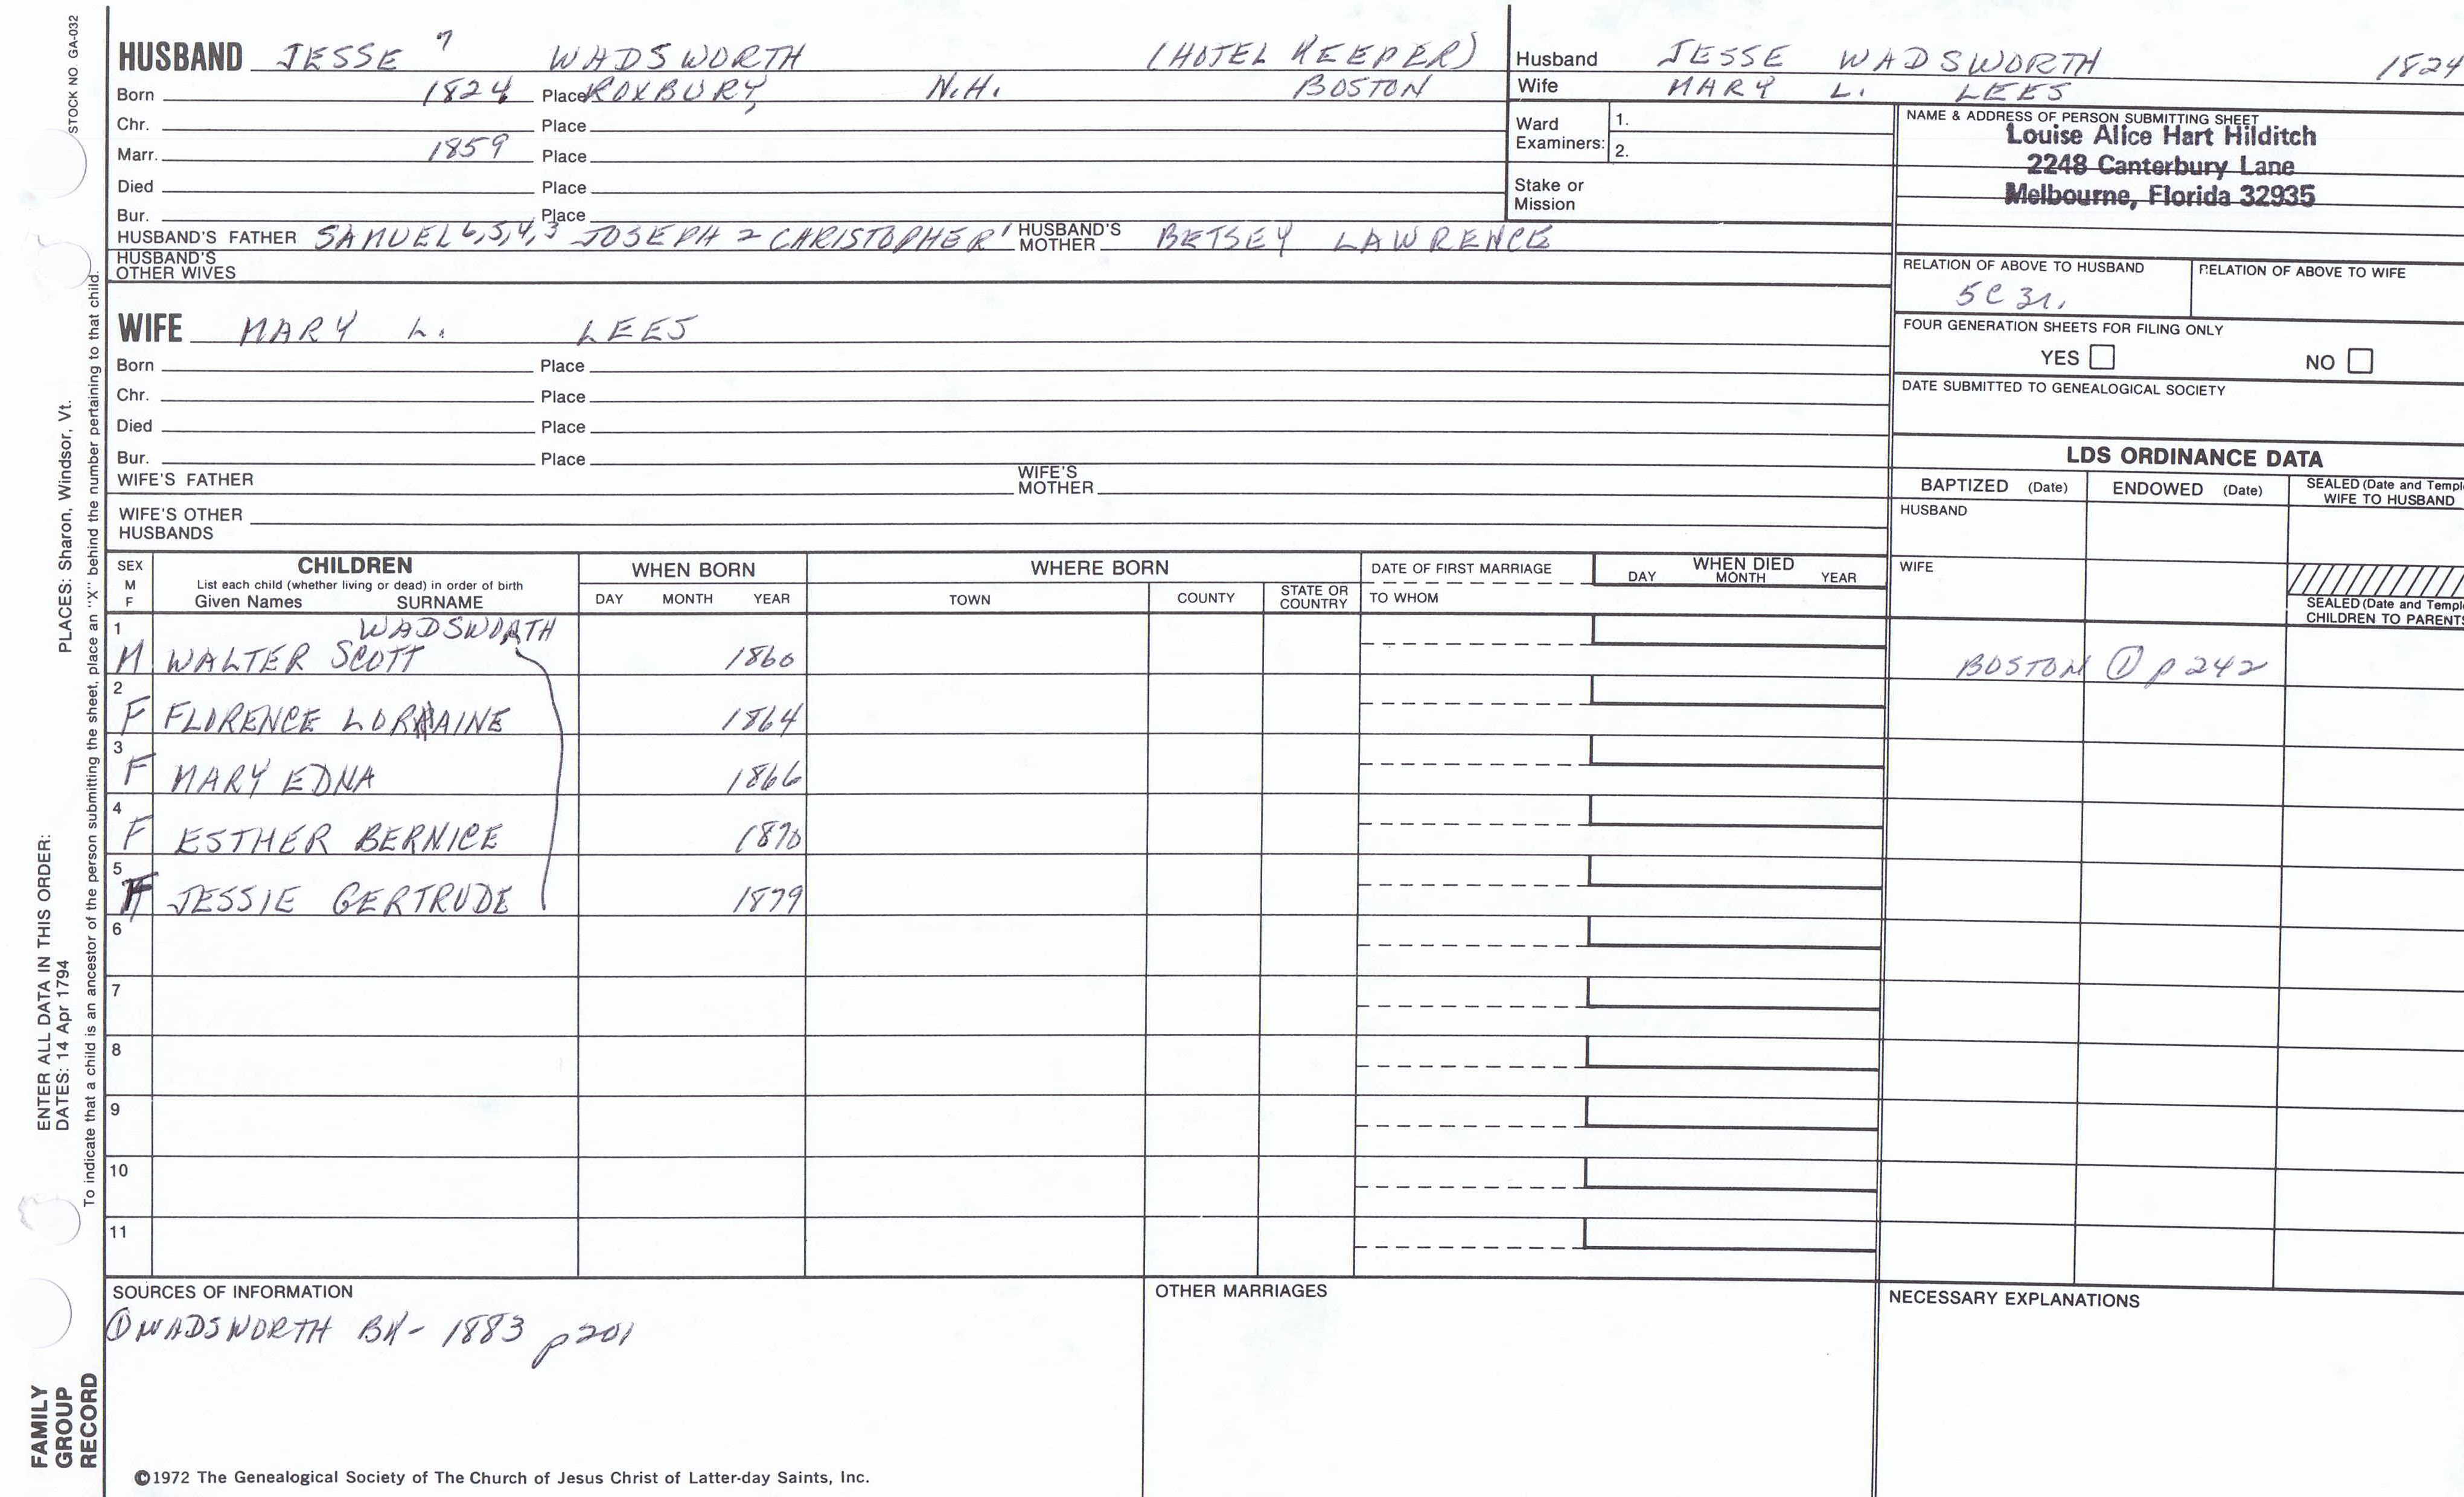 STOCK NO GA-032
HUSBAND JESSE 7 WADSWORTH (HOTEL KEEPER)
Born 1824 Place ROXBURY, N.H. BOSTON
Chr. Place
Marr. 1859 Place
Died Place
Bur. Place
HUSBAND'S FATHER SAMUEL 6,5,4,3 JOSEPH 2 CHRISTOPHER 1 HUSBAND'S MOTHER BETSEY LAWRENCE
HUSBAND'S OTHER WIVES
Husband JESSE WADSWORTH 1824
Wife MARY L. LEES
Ward Examiners: 1.
2.
Stake or Mission
NAME & ADDRESS OF PERSON SUBMITTING SHEET
Louise Alice Hart Hilditch
2248 Canterbury Lane
Melbourne, Florida 32935
RELATION OF ABOVE TO HUSBAND RELATION OF ABOVE TO WIFE
5C 3r.
FOUR GENERATION SHEETS FOR FILING ONLY
YES NO
DATE SUBMITTED TO GENEALOGICAL SOCIETY
WIFE MARY L. LEES
Born Place
Chr. Place
Died Place
Bur. Place
WIFE'S FATHER WIFE'S MOTHER
WIFE'S OTHER HUSBANDS
LDS ORDINANCE DATA
BAPTIZED (Date) ENDOWED (Date) SEALED (Date and Templ
WIFE TO HUSBAND
HUSBAND
WIFE
SEALED (Date and Templ
CHILDREN TO PARENTS
SEX M F CHILDREN WHEN BORN WHERE BORN DATE OF FIRST MARRIAGE WHEN DIED
List each child (whether living or dead) in order of birth
Given Names SURNAME DAY MONTH YEAR TOWN COUNTY STATE OR COUNTRY TO WHOM DAY MONTH YEAR
WADSWORTH
1 M WALTER SCOTT 1860 BOSTON ① p 242
2 F FLORENCE LORRAINE 1864
3 F MARY EDNA 1866
4 F ESTHER BERNICE 1870
5 F JESSIE GERTRUDE 1879
6
7
8
9
10
11
SOURCES OF INFORMATION
① WADSWORTH BK- 1883 p201
OTHER MARRIAGES
NECESSARY EXPLANATIONS
©1972 The Genealogical Society of The Church of Jesus Christ of Latter-day Saints, Inc.
FAMILY
GROUP
RECORD
ENTER ALL DATA IN THIS ORDER:
DATES: 14 Apr 1794
PLACES: Sharon, Windsor, Vt.
To indicate that a child is an ancestor of the person submitting the sheet, place an "X" behind the number pertaining to that child.